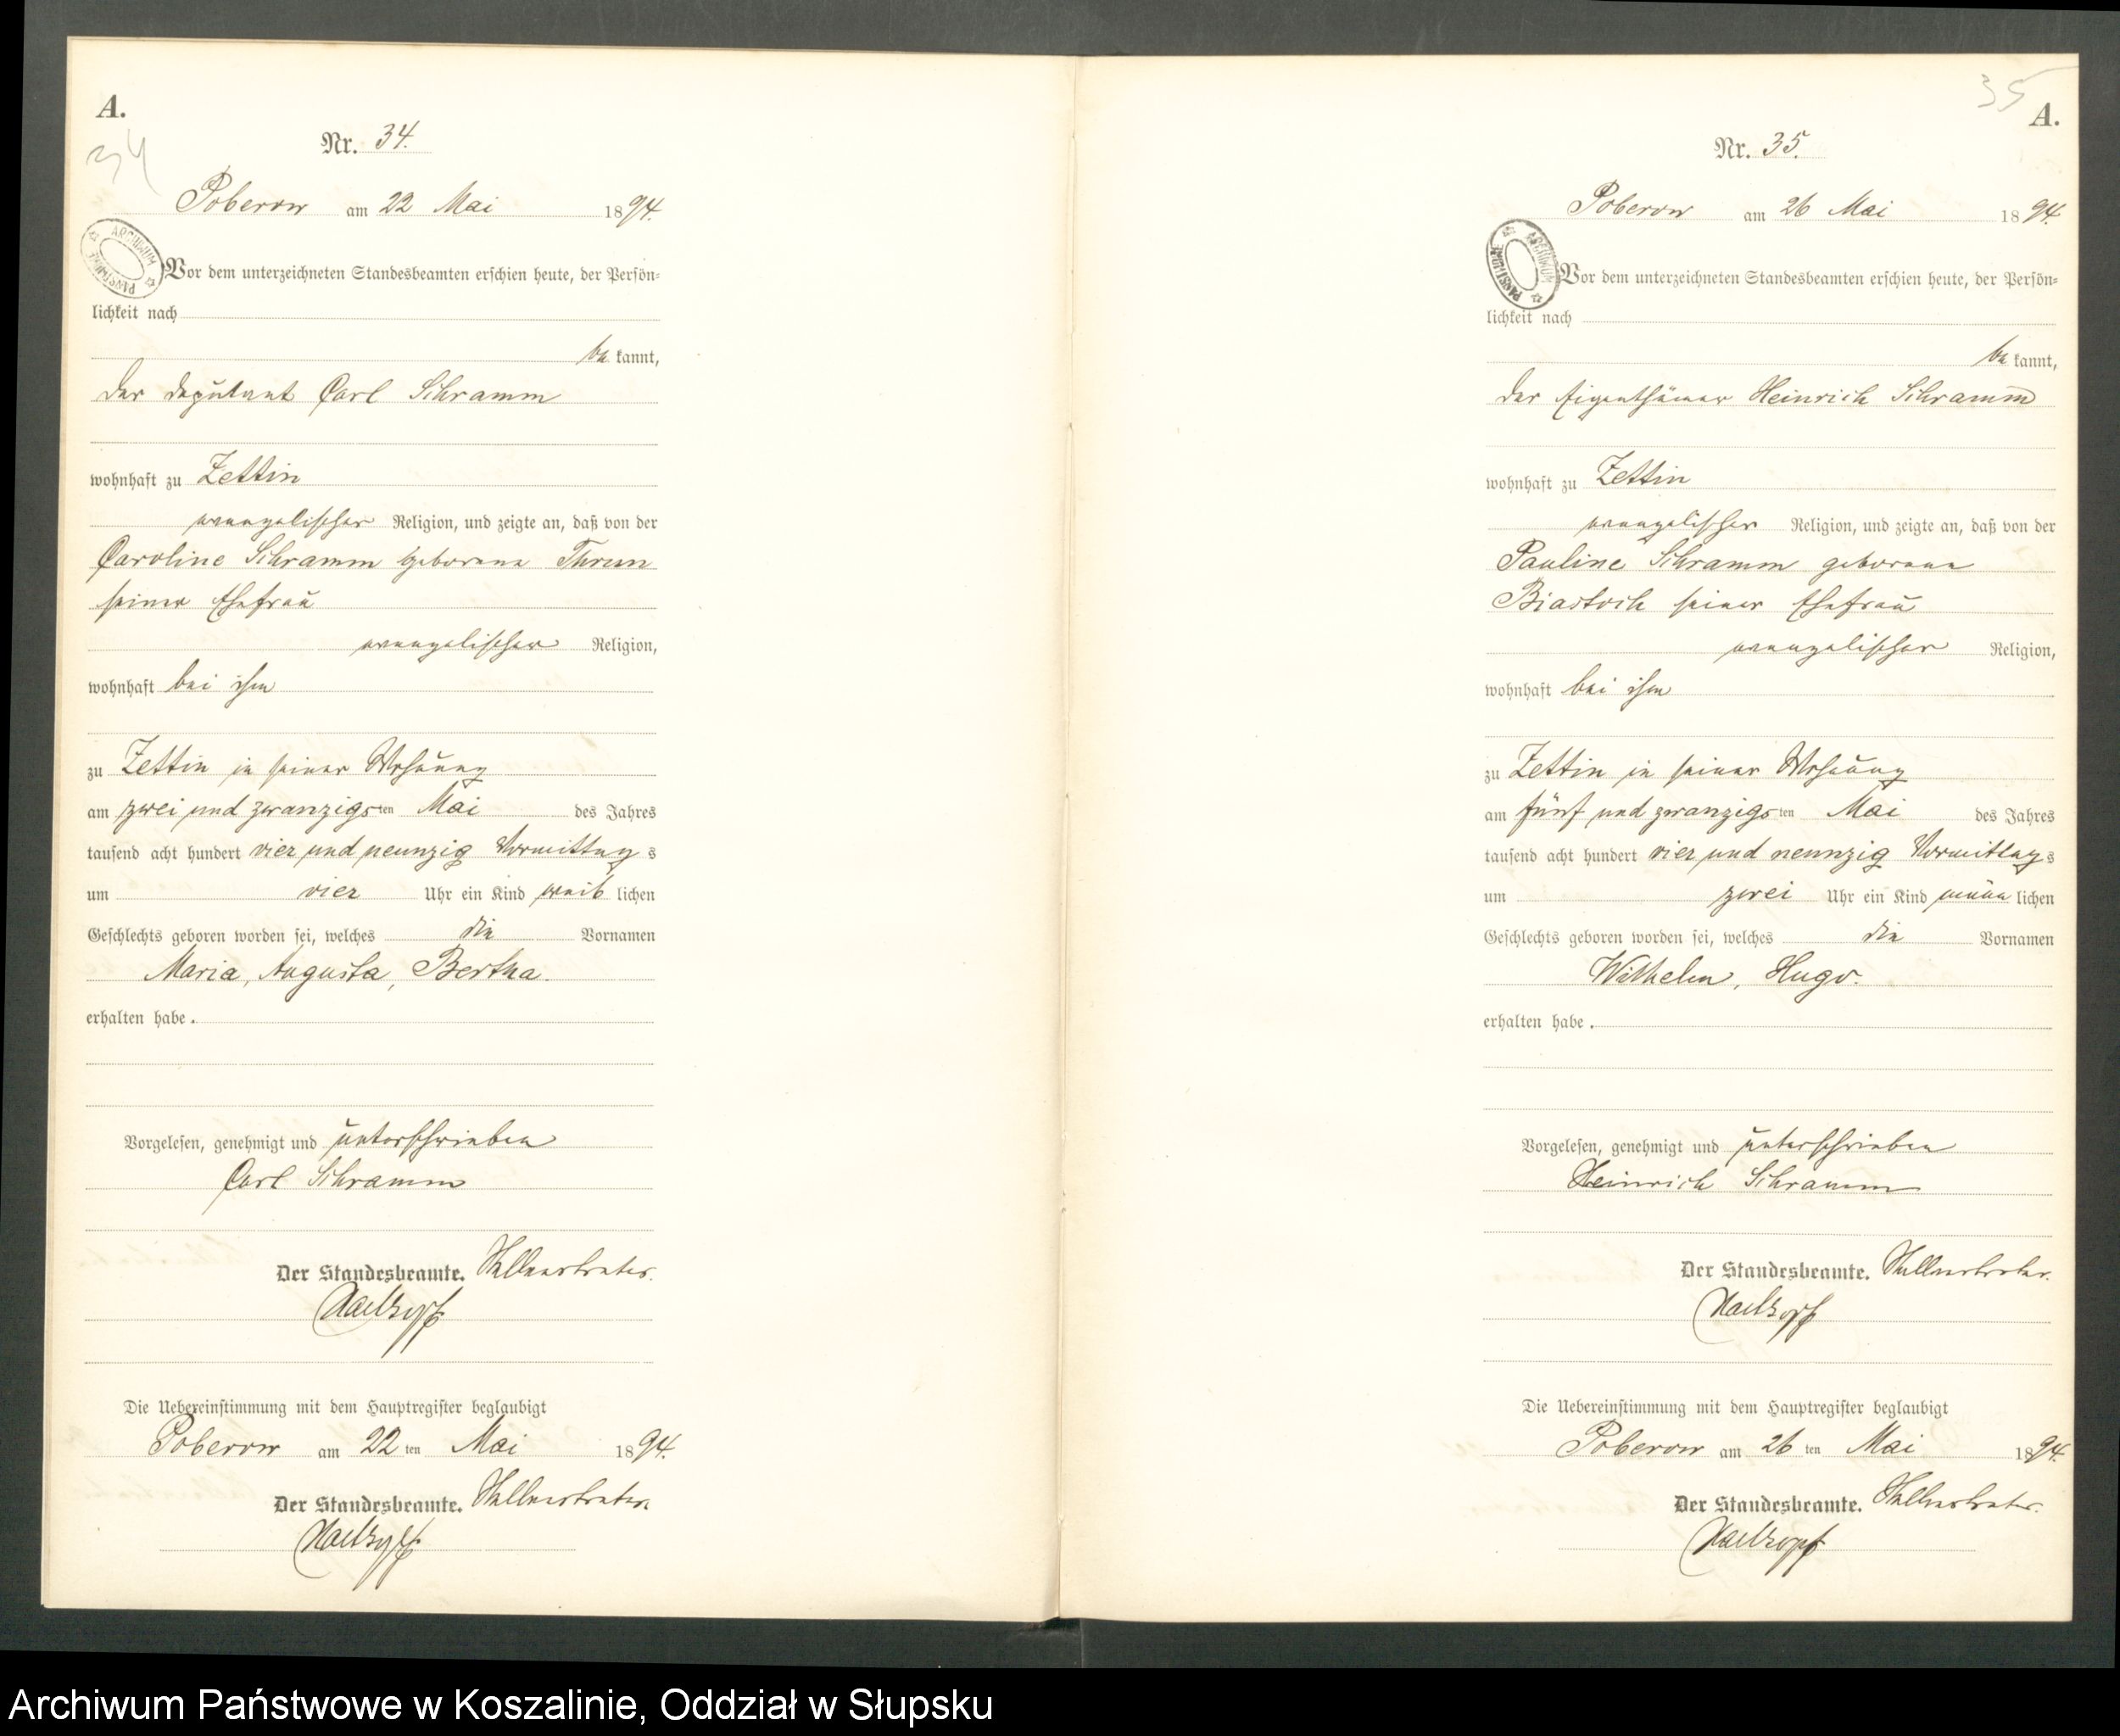 A.
34
Nr. 34.
Poberow am 22 Mai 1894.
ARCHIWUM PAŃSTWOWE
Vor dem unterzeichneten Standesbeamten erschien heute, der Persön-
lichkeit nach
be kannt,
der Deputant Carl Schramm
wohnhaft zu Zettin
evangelischer Religion, und zeigte an, daß von der
Caroline Schramm geborene Thrun
seiner Ehefrau
evangelischer Religion,
wohnhaft bei ihm
zu Zettin in seiner Wohnung
am zwei und zwanzigsten Mai des Jahres
tausend acht hundert vier und neunzig Vormittags
um vier Uhr ein Kind weiblichen
Geschlechts geboren worden sei, welches die Vornamen
Maria, Augusta, Bertha.
erhalten habe.
Vorgelesen, genehmigt und unterschrieben
Carl Schramm
Der Standesbeamte.
Die Uebereinstimmung mit dem Hauptregister beglaubigt
Poberow am 22ten Mai 1894.
Der Standesbeamte.
35
A.
Nr. 35.
Poberow am 26 Mai 1894.
ARCHIWUM PAŃSTWOWE
Vor dem unterzeichneten Standesbeamten erschien heute, der Persön-
lichkeit nach
be kannt,
der Eigenthümer Heinrich Schramm
wohnhaft zu Zettin
evangelischer Religion, und zeigte an, daß von der
Pauline Schramm geborene
Biastoch seiner Ehefrau
evangelischer Religion,
wohnhaft bei ihm
zu Zettin in seiner Wohnung
am fünf und zwanzigsten Mai des Jahres
tausend acht hundert vier und neunzig Vormittags
um zwei Uhr ein Kind männlichen
Geschlechts geboren worden sei, welches die Vornamen
Wilhelm, Hugo.
erhalten habe.
Vorgelesen, genehmigt und unterschrieben
Heinrich Schramm
Der Standesbeamte.
Die Uebereinstimmung mit dem Hauptregister beglaubigt
Poberow am 26ten Mai 1894.
Der Standesbeamte.
Archiwum Państwowe w Koszalinie, Oddział w Słupsku